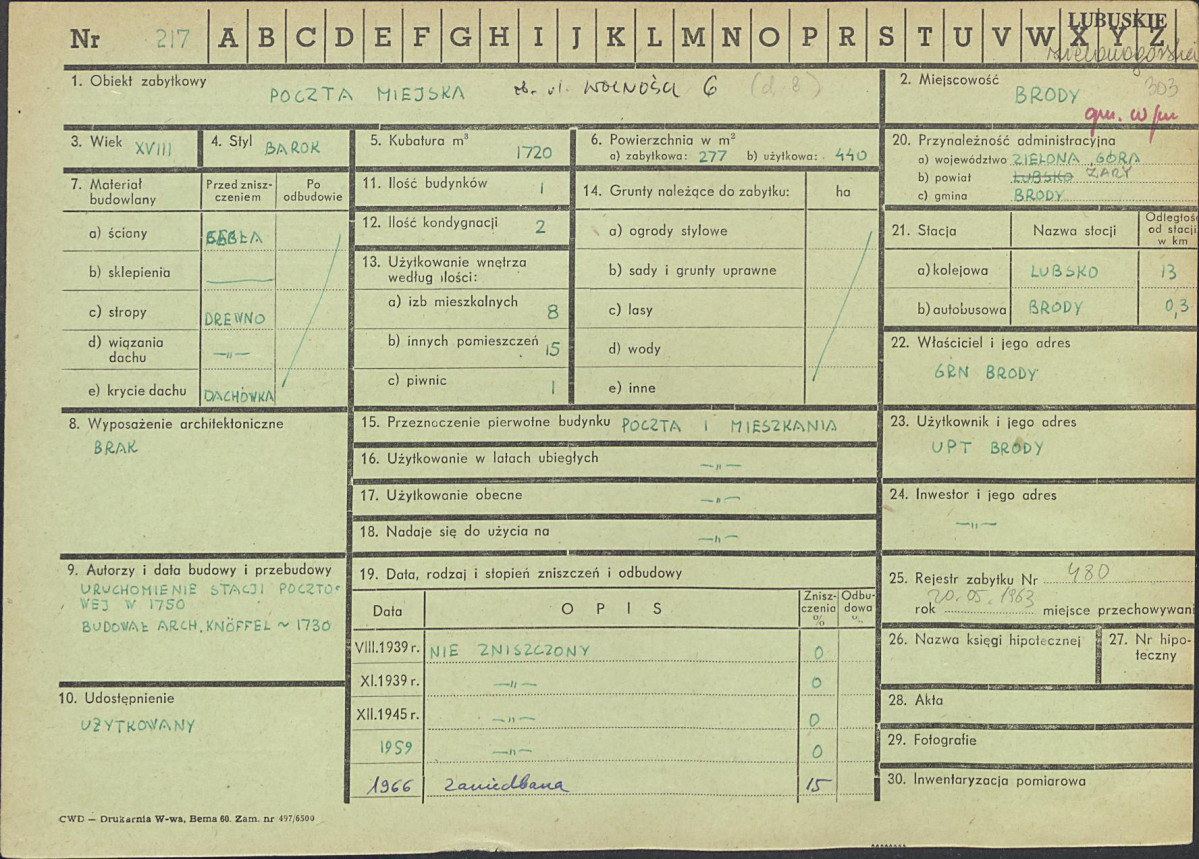 Nr 217 A B C D E F G H I J K L M N O P R S T U V W X Y Z LUBUSKIE
zielonogórskie
1. Obiekt zabytkowy
POCZTA MIEJSKA ob. ul. WOLNOŚCI 6 (d 8)
2. Miejscowość
303
BRODY
gm. w/m
3. Wiek XVIII
4. Styl BAROK
5. Kubatura m³
1720
6. Powierzchnia w m²
a) zabytkowa: 277 b) użytkowa: 440
20. Przynależność administracyjna
a) województwo ZIELONA GÓRA
b) powiat LUBSKO ŻARY
c) gmina BRODY
7. Materiał budowlany
Przed zniszczeniem
Po odbudowie
a) ściany CEGŁA
b) sklepienia —
c) stropy DREWNO
d) wiązania dachu —„—
e) krycie dachu DACHÓWKA
11. Ilość budynków 1
12. Ilość kondygnacji 2
13. Użytkowanie wnętrza
według ilości:
a) izb mieszkalnych 8
b) innych pomieszczeń 15
c) piwnic 1
14. Grunty należące do zabytku: ha
a) ogrody stylowe
b) sady i grunty uprawne
c) lasy
d) wody
e) inne
21. Stacja Nazwa stacji Odległość od stacji w km
a) kolejowa LUBSKO 13
b) autobusowa BRODY 0,3
22. Właściciel i jego adres
GRN BRODY
8. Wyposażenie architektoniczne
BRAK
15. Przeznaczenie pierwotne budynku POCZTA I MIESZKANIA
16. Użytkowanie w latach ubiegłych —„—
17. Użytkowanie obecne —„—
18. Nadaje się do użycia na —„—
23. Użytkownik i jego adres
UPT BRODY
24. Inwestor i jego adres
—„—
9. Autorzy i data budowy i przebudowy
URUCHOMIENIE STACJI POCZTO-
WEJ W 1750
BUDOWAŁ ARCH. KNÖFFEL ~ 1730
10. Udostępnienie
UŻYTKOWANY
19. Data, rodzaj i stopień zniszczeń i odbudowy
Data OPIS Zniszczenia % Odbudowa %
VIII.1939 r. NIE ZNISZCZONY 0
XI.1939 r. —„— 0
XII.1945 r. —„— 0
1959 —„— 0
1966 zaniedbana 15
25. Rejestr zabytku Nr 480
rok 20.05.1963 miejsce przechowywani
26. Nazwa księgi hipotecznej
27. Nr hipo-
teczny
28. Akta
29. Fotografie
30. Inwentaryzacja pomiarowa
CWD — Drukarnia W-wa, Bema 60. Zam. nr 497/6500